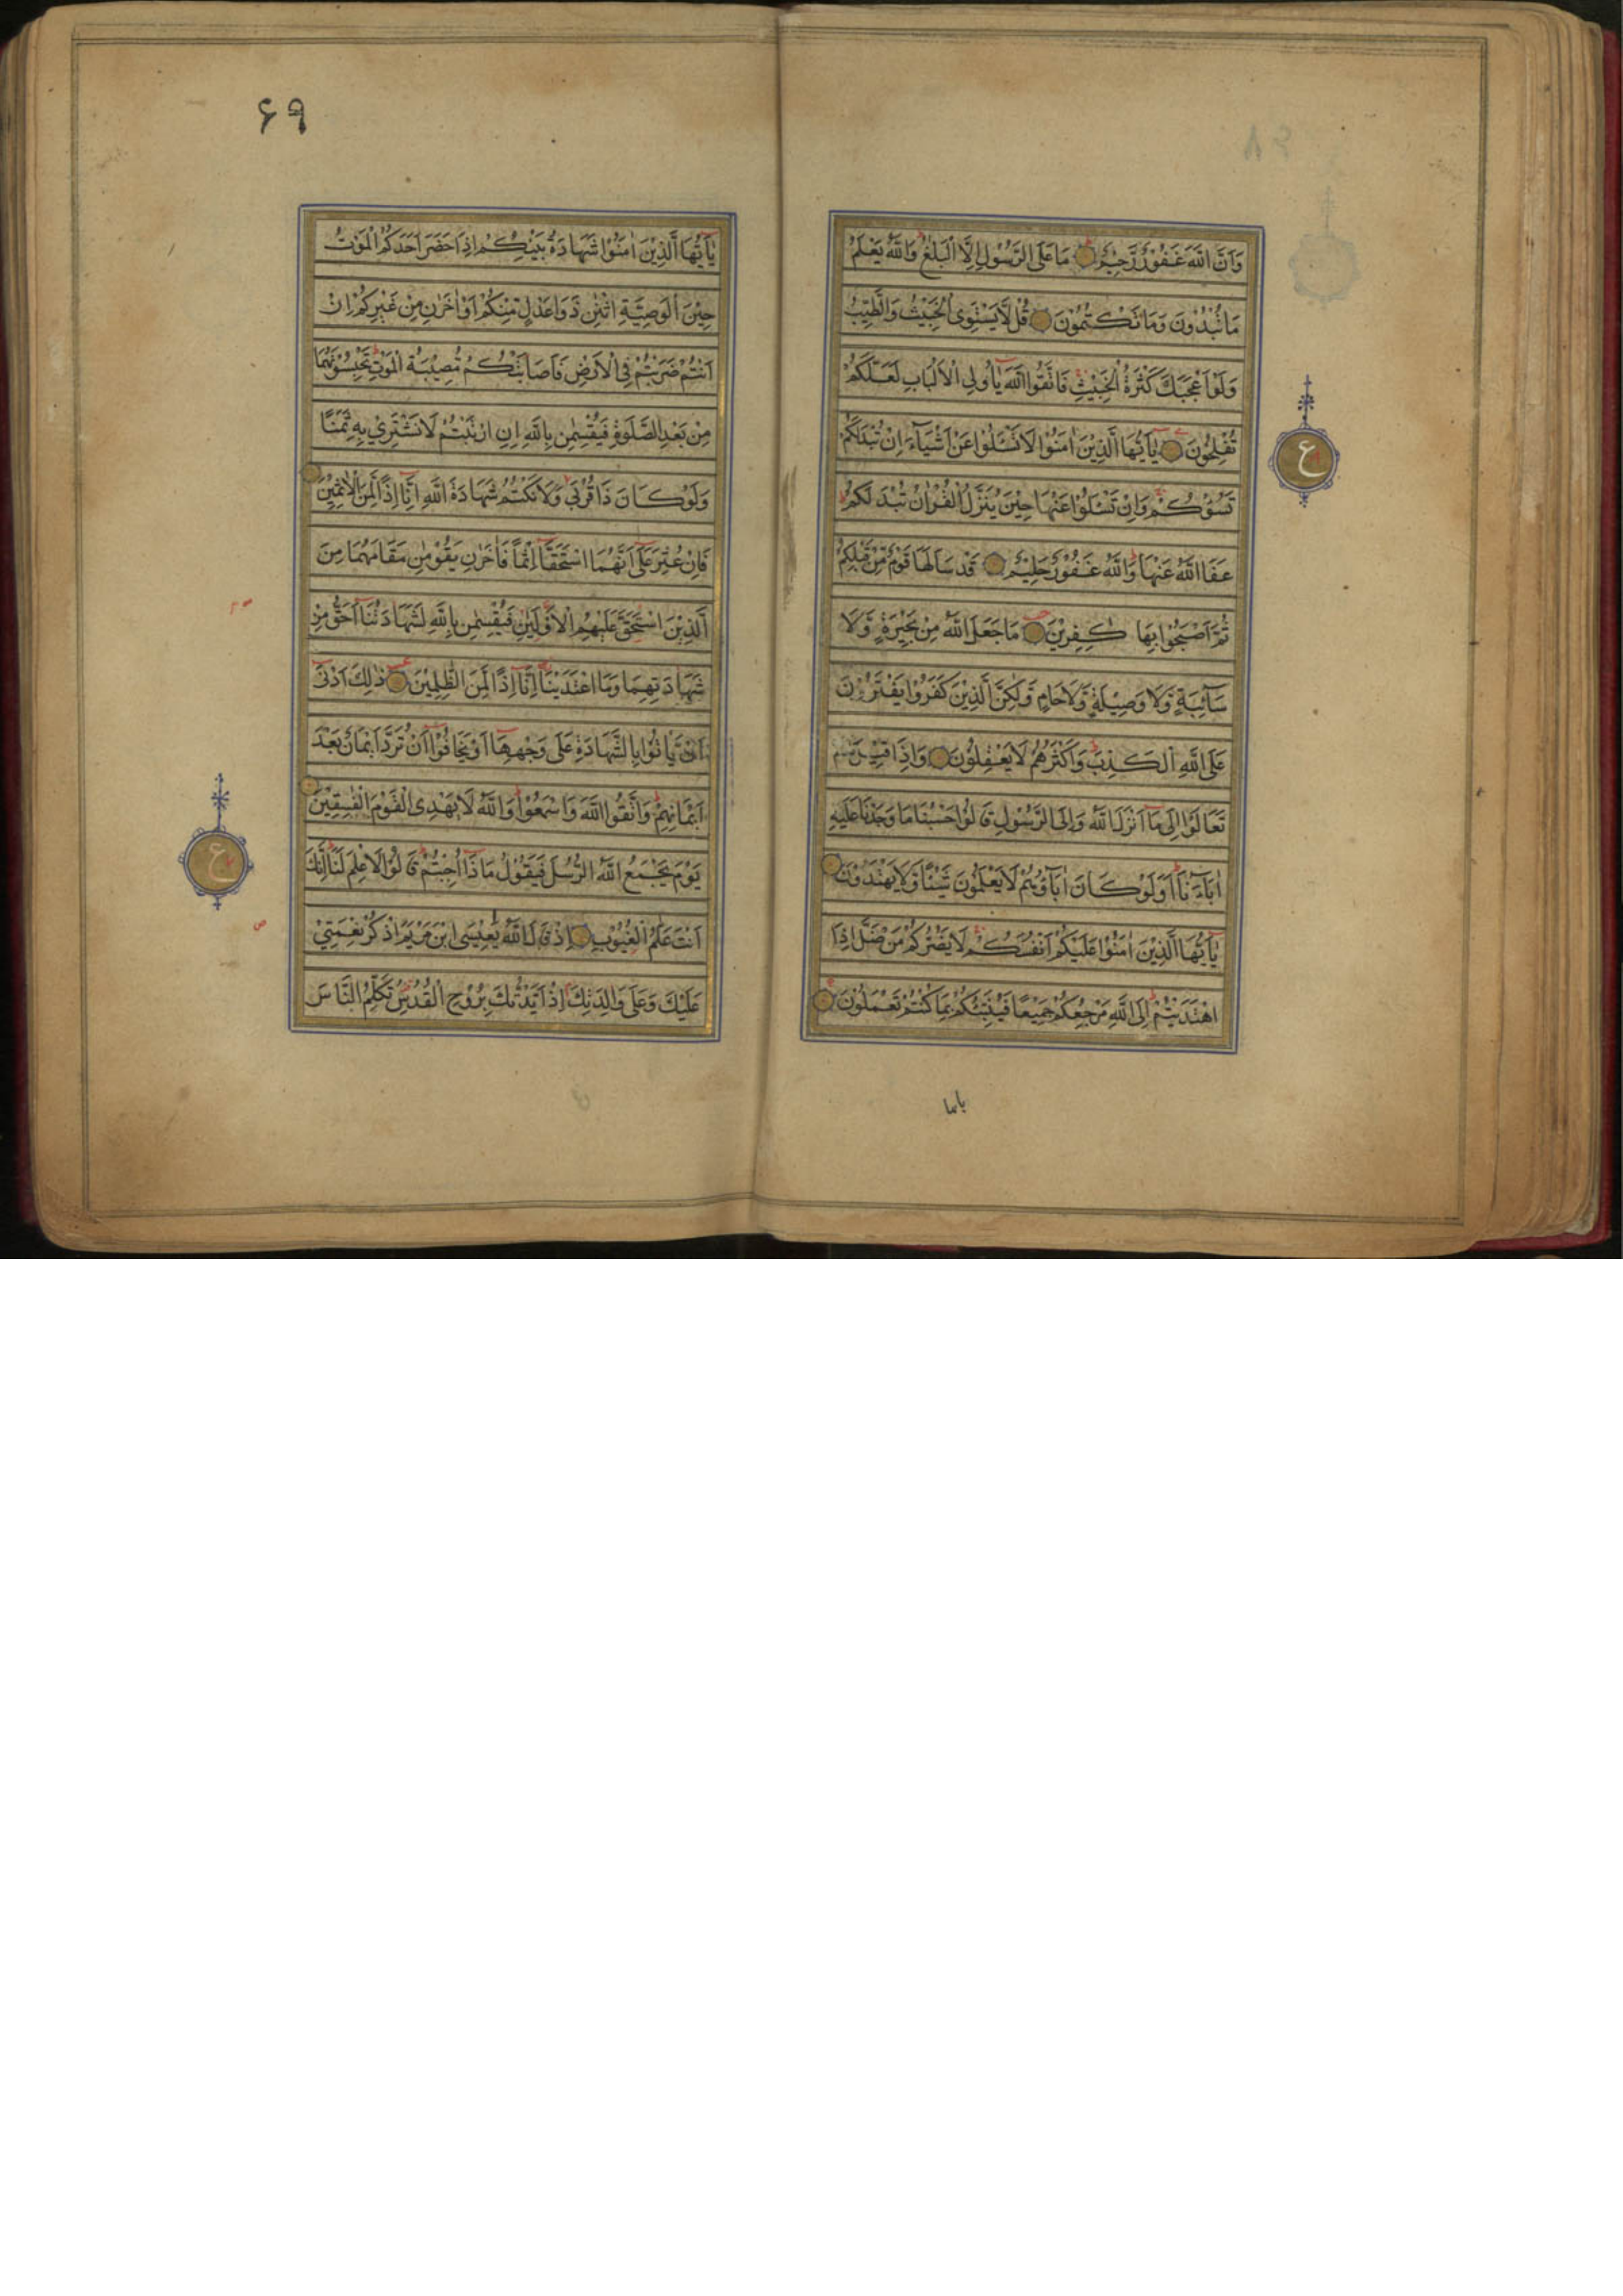 وَاَنَّ اللّٰهَ غَفُوْرٌ رَّحِيْمٌ مَا عَلَى الرَّسُوْلِ اِلَّا الْبَلٰغُ وَاللّٰهُ يَعْلَمُ
مَا تُبْدُوْنَ وَمَا تَكْتُمُوْنَ قُلْ لَّا يَسْتَوِى الْخَبِيْثُ وَالطَّيِّبُ
وَلَوْ اَعْجَبَكَ كَثْرَةُ الْخَبِيْثِ فَاتَّقُوا اللّٰهَ يٰٓاُولِى الْاَلْبَابِ لَعَلَّكُمْ
تُفْلِحُوْنَ يٰٓاَيُّهَا الَّذِيْنَ اٰمَنُوْا لَا تَسْـَٔلُوْا عَنْ اَشْيَآءَ اِنْ تُبْدَ لَكُمْ
تَسُؤْكُمْ وَاِنْ تَسْـَٔلُوْا عَنْهَا حِيْنَ يُنَزَّلُ الْقُرْاٰنُ تُبْدَ لَكُمْ
عَفَا اللّٰهُ عَنْهَا وَاللّٰهُ غَفُوْرٌ حَلِيْمٌ قَدْ سَاَلَهَا قَوْمٌ مِّنْ قَبْلِكُمْ
ثُمَّ اَصْبَحُوْا بِهَا كٰفِرِيْنَ مَا جَعَلَ اللّٰهُ مِنْ بَحِيْرَةٍ وَّلَا
سَآئِبَةٍ وَّلَا وَصِيْلَةٍ وَّلَا حَامٍ وَّلٰكِنَّ الَّذِيْنَ كَفَرُوْا يَفْتَرُوْنَ
عَلَى اللّٰهِ الْكَذِبَ وَاَكْثَرُهُمْ لَا يَعْقِلُوْنَ وَاِذَا قِيْلَ لَهُمْ
تَعَالَوْا اِلٰى مَآ اَنْزَلَ اللّٰهُ وَاِلَى الرَّسُوْلِ قَالُوْا حَسْبُنَا مَا وَجَدْنَا عَلَيْهِ
اٰبَآءَنَا اَوَلَوْ كَانَ اٰبَآؤُهُمْ لَا يَعْلَمُوْنَ شَيْئًا وَّلَا يَهْتَدُوْنَ
يٰٓاَيُّهَا الَّذِيْنَ اٰمَنُوْا عَلَيْكُمْ اَنْفُسَكُمْ لَا يَضُرُّكُمْ مَنْ ضَلَّ اِذَا
اهْتَدَيْتُمْ اِلَى اللّٰهِ مَرْجِعُكُمْ جَمِيْعًا فَيُنَبِّئُكُمْ بِمَا كُنْتُمْ تَعْمَلُوْنَ
ع
یایها
۶۹
يٰٓاَيُّهَا الَّذِيْنَ اٰمَنُوْا شَهَادَةُ بَيْنِكُمْ اِذَا حَضَرَ اَحَدَكُمُ الْمَوْتُ
حِيْنَ الْوَصِيَّةِ اثْنٰنِ ذَوَا عَدْلٍ مِّنْكُمْ اَوْ اٰخَرٰنِ مِنْ غَيْرِكُمْ اِنْ
اَنْتُمْ ضَرَبْتُمْ فِى الْاَرْضِ فَاَصَابَتْكُمْ مُّصِيْبَةُ الْمَوْتِ تَحْبِسُوْنَهُمَا
مِنْ بَعْدِ الصَّلٰوةِ فَيُقْسِمٰنِ بِاللّٰهِ اِنِ ارْتَبْتُمْ لَا نَشْتَرِيْ بِهٖ ثَمَنًا
وَلَوْ كَانَ ذَا قُرْبٰى وَلَا نَكْتُمُ شَهَادَةَ اللّٰهِ اِنَّآ اِذًا لَّمِنَ الْاٰثِمِيْنَ
فَاِنْ عُثِرَ عَلٰٓى اَنَّهُمَا اسْتَحَقَّآ اِثْمًا فَاٰخَرٰنِ يَقُوْمٰنِ مَقَامَهُمَا مِنَ
الَّذِيْنَ اسْتَحَقَّ عَلَيْهِمُ الْاَوْلَيٰنِ فَيُقْسِمٰنِ بِاللّٰهِ لَشَهَادَتُنَآ اَحَقُّ مِنْ
شَهَادَتِهِمَا وَمَا اعْتَدَيْنَآ اِنَّآ اِذًا لَّمِنَ الظّٰلِمِيْنَ ذٰلِكَ اَدْنٰٓى
اَنْ يَّاْتُوْا بِالشَّهَادَةِ عَلٰى وَجْهِهَآ اَوْ يَخَافُوْٓا اَنْ تُرَدَّ اَيْمَانٌ بَعْدَ
اَيْمَانِهِمْ وَاتَّقُوا اللّٰهَ وَاسْمَعُوْا وَاللّٰهُ لَا يَهْدِى الْقَوْمَ الْفٰسِقِيْنَ
يَوْمَ يَجْمَعُ اللّٰهُ الرُّسُلَ فَيَقُوْلُ مَاذَآ اُجِبْتُمْ قَالُوْا لَا عِلْمَ لَنَا اِنَّكَ
اَنْتَ عَلَّامُ الْغُيُوْبِ اِذْ قَالَ اللّٰهُ يٰعِيْسَى ابْنَ مَرْيَمَ اذْكُرْ نِعْمَتِيْ
عَلَيْكَ وَعَلٰى وَالِدَتِكَ اِذْ اَيَّدْتُّكَ بِرُوْحِ الْقُدُسِ تُكَلِّمُ النَّاسَ
ع